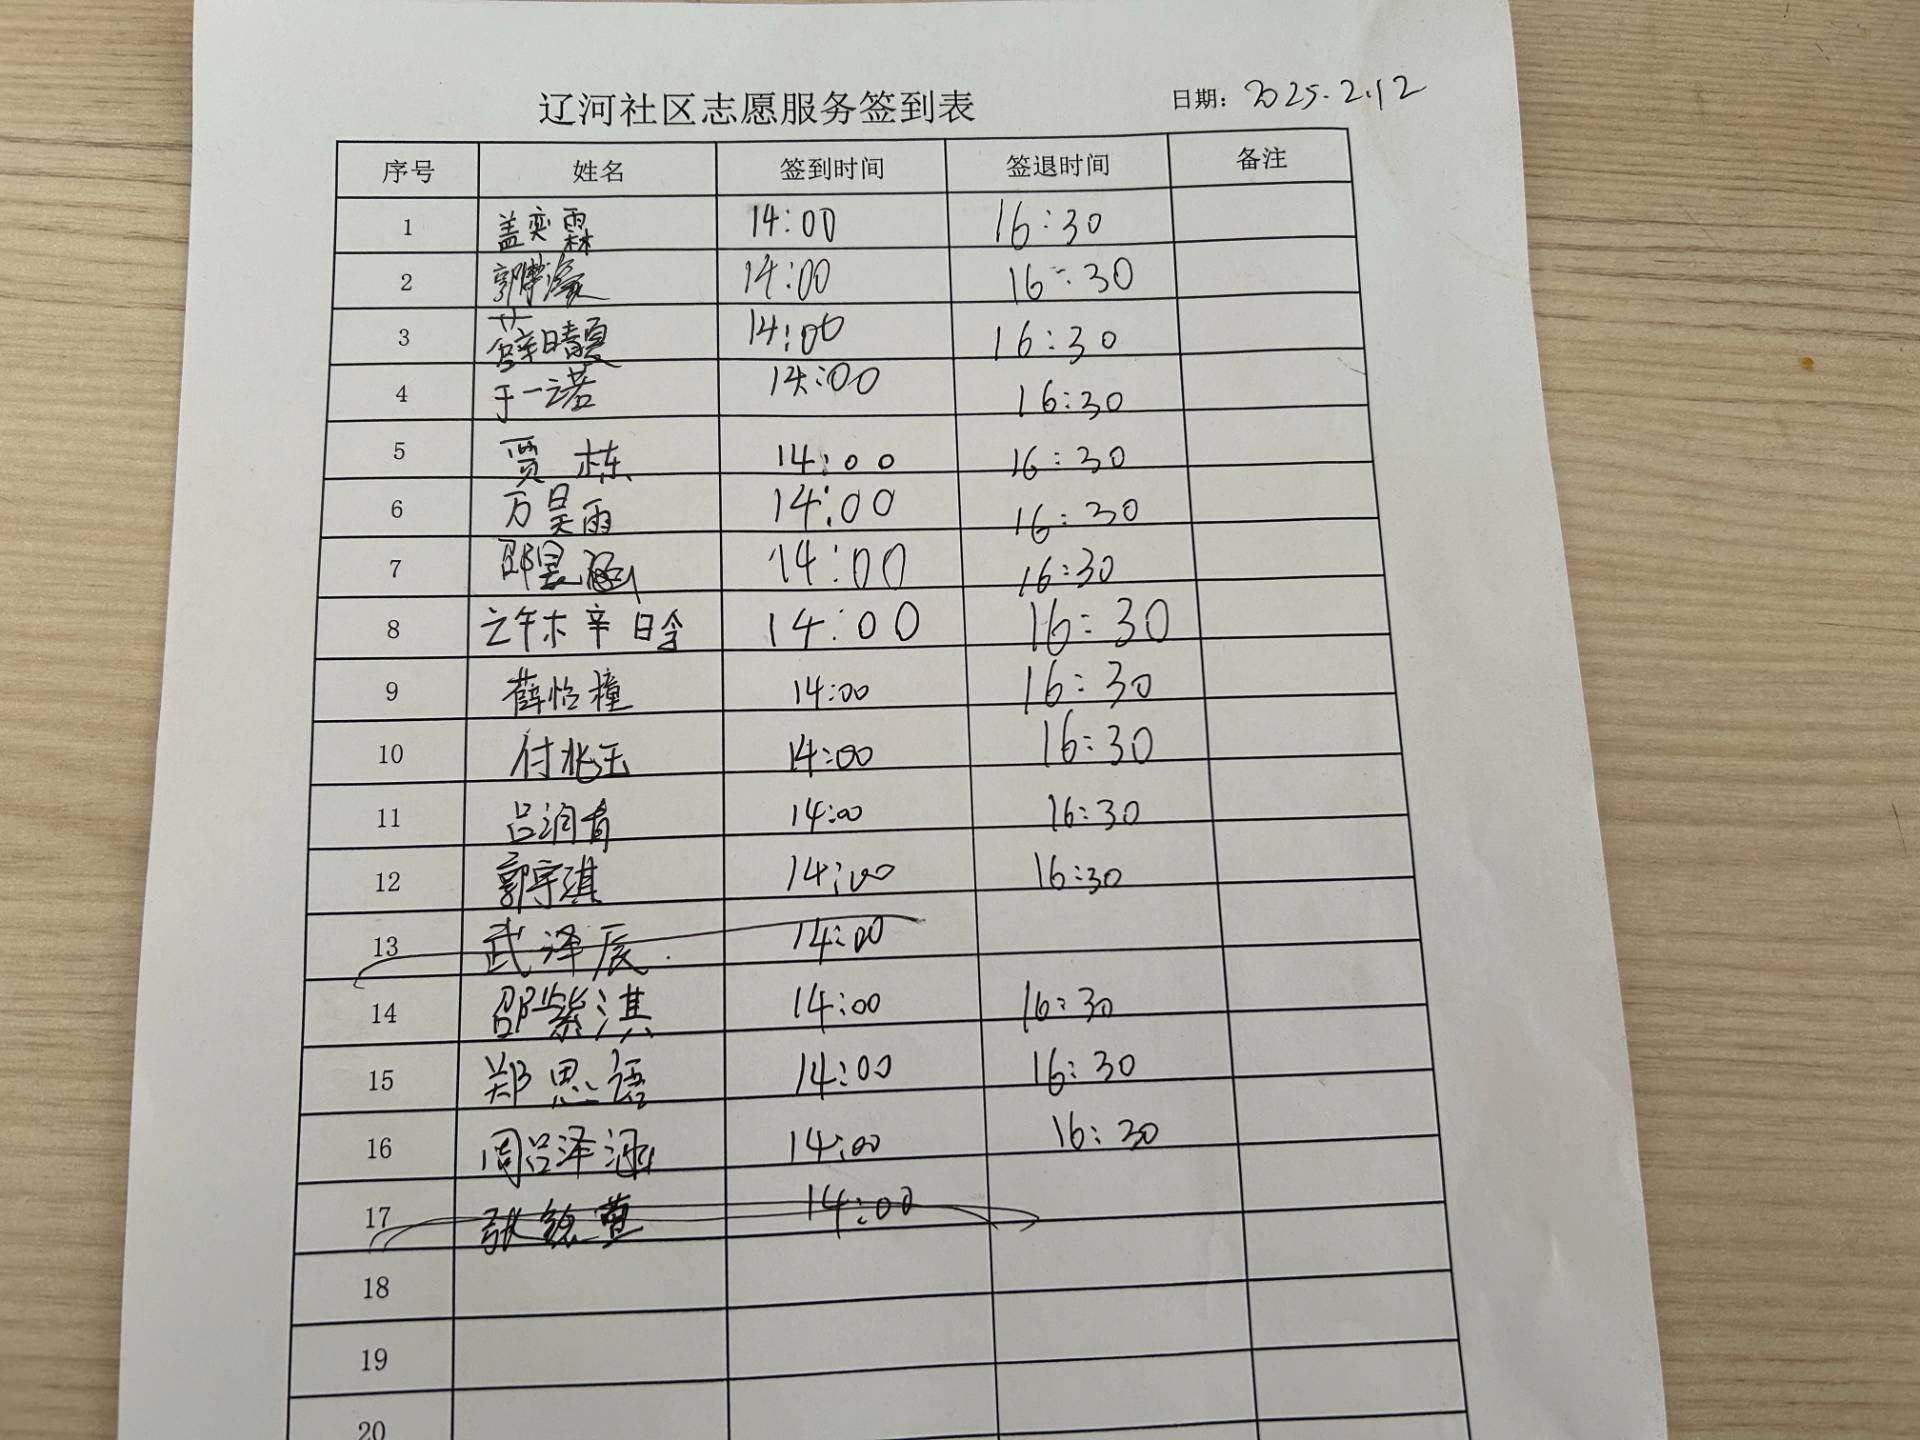 辽河社区志愿服务签到表
日期: 2025.2.12
序号 姓名 签到时间 签退时间 备注
1 盖奕霖 14:00 16:30
2 14:00 16:30
3 薛晴夏 14:00 16:30
4 于一诺 14:00 16:30
5 贾栋 14:00 16:30
6 万昊雨 14:00 16:30
7 邵昱涵 14:00 16:30
8 许梓晗 14:00 16:30
9 薛怡橦 14:00 16:30
10 付兆玉 14:00 16:30
11 吕润肯 14:00 16:30
12 郭宇淇 14:00 16:30
13 武泽辰 14:00
14 邵紫淇 14:00 16:30
15 郑思语 14:00 16:30
16 周吕泽涵 14:00 16:30
17 14:00
18
19
20